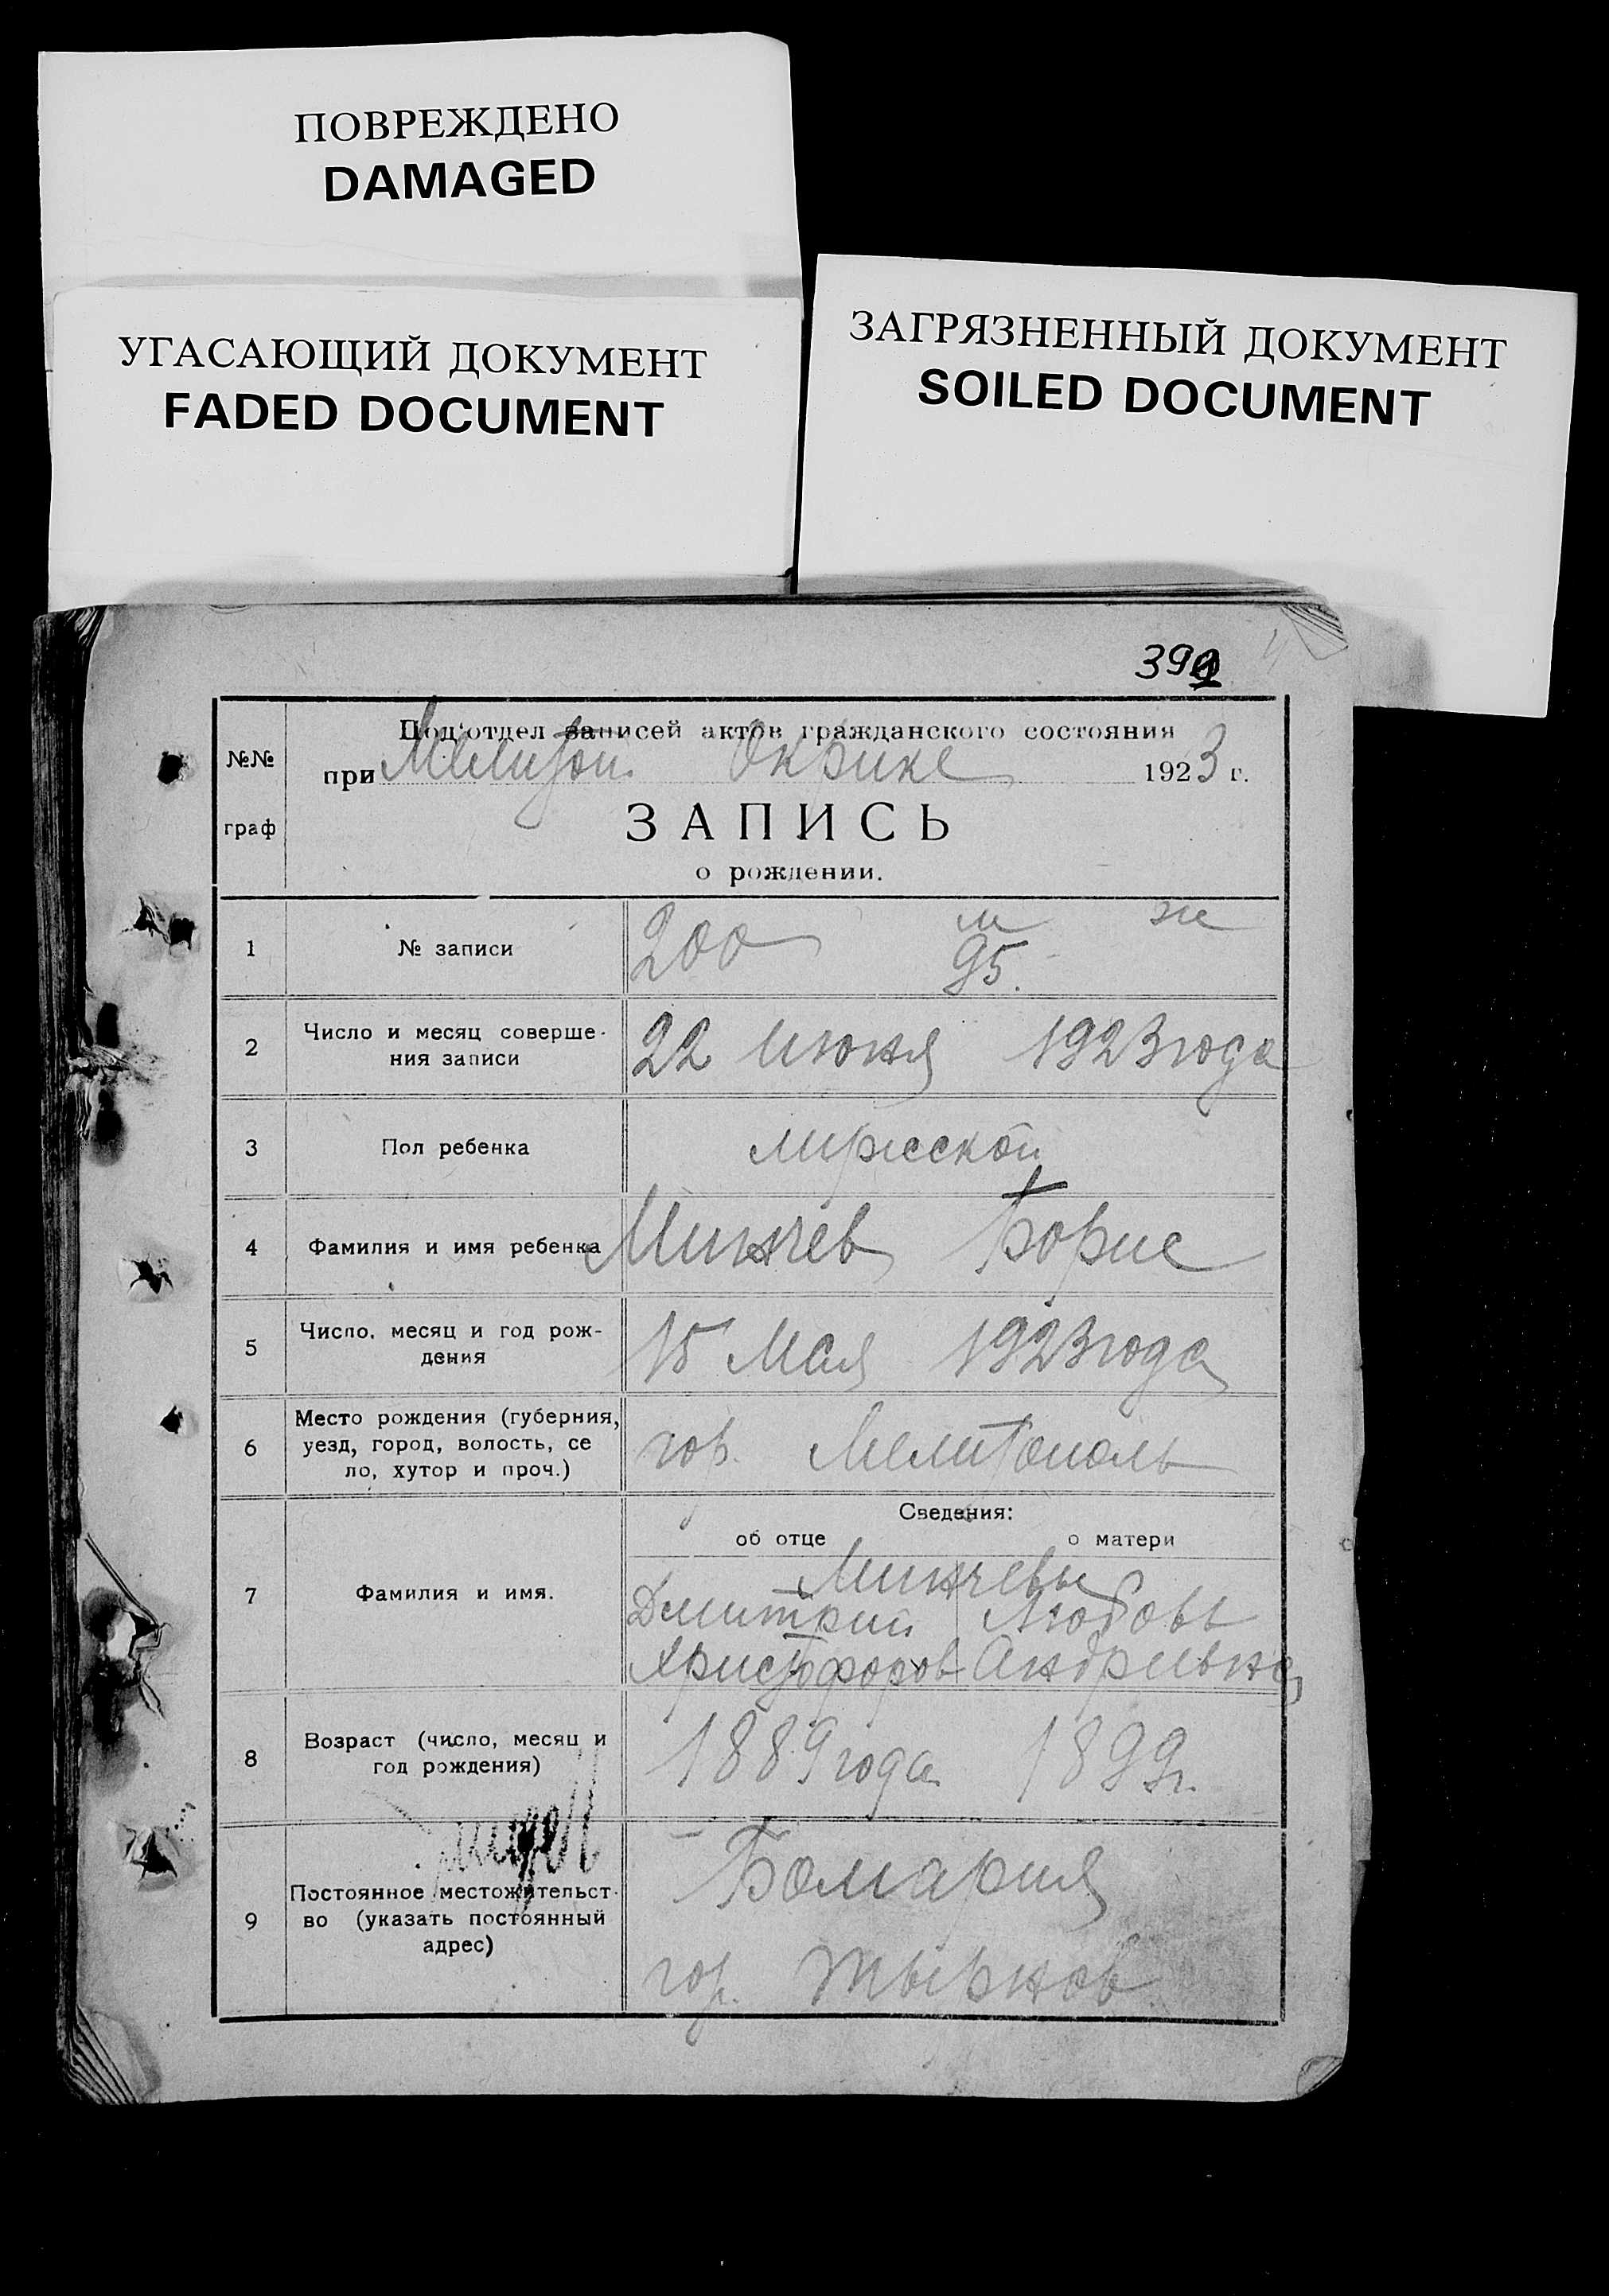 ПОВРЕЖДЕНО
DAMAGED
УГАСАЮЩИЙ ДОКУМЕНТ
FADED DOCUMENT
ЗАГРЯЗНЕННЫЙ ДОКУМЕНТ
SOILED DOCUMENT
№№
граф
Под'отдел записей актов гражданского состояния
при Мелитоп. Окрике 1923 г.
ЗАПИСЬ
о рождении.
1 № записи 200 м ж
95.
2 Число и месяц соверше-
ния записи 22 Июня 1923 года
3 Пол ребенка мужеской
4 Фамилия и имя ребенка Минчев Борис
5 Число, месяц и год рож-
дения 15 Мая 1923 года
6 Место рождения (губерния,
уезд, город, волость, се
ло, хутор и проч.) гор. Мелитополь
Сведения:
об отце о матери
7 Фамилия и имя. Минчевы
Дмитрий Любовь
Христофоров Андреевна
8 Возраст (число, месяц и
год рождения) 1889 года 1899 г.
9 Постоянное местожительст-
во (указать постоянный
адрес) Болгария
гор. Тырнов